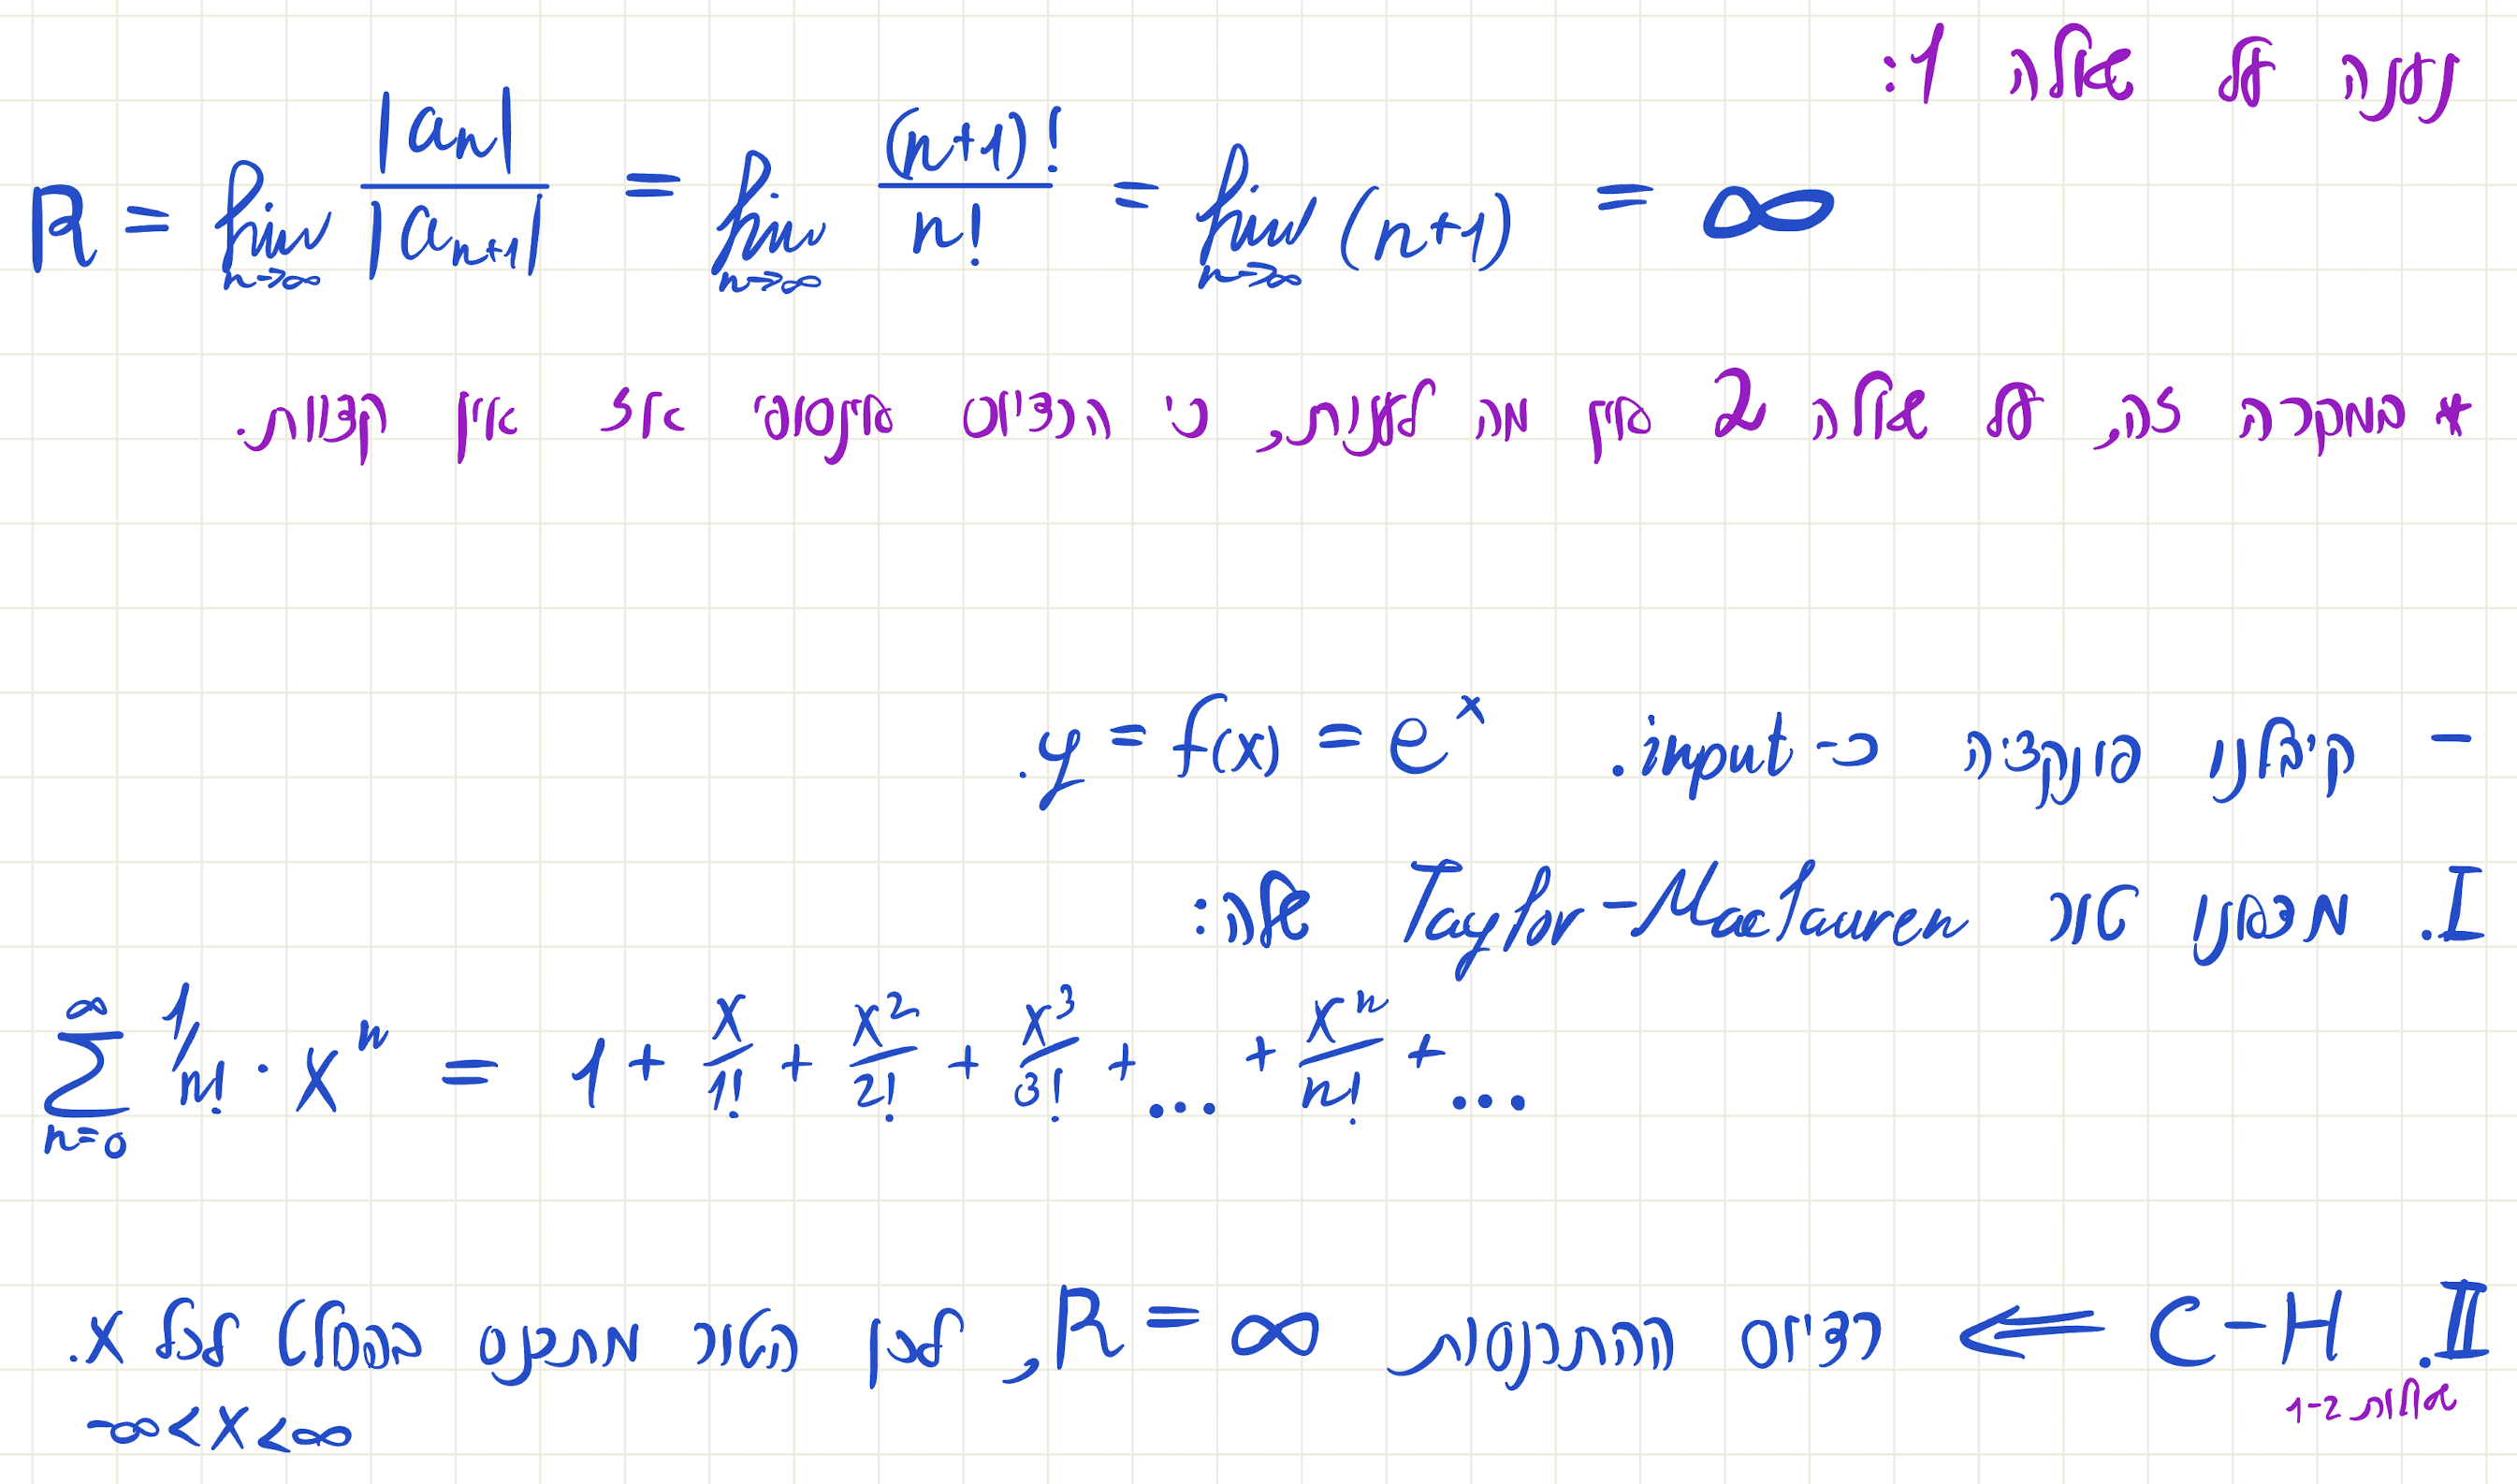 נענה על שאלה 1:
R = lim n→∞ |a_n| / |a_{n+1}| = lim n→∞ (n+1)! / n! = lim n→∞ (n+1) = ∞
* במקרה זה, על שאלה 2 אין מה לענות, כי הרדיוס אינסופי אז אין קצוות.
- קיבלנו פונקציה כ-input. y = f(x) = e^x.
I. מצאנו טור Taylor-Maclauren שלה:
∑_{n=0}^{∞} 1/n! · x^n = 1 + x/1! + x²/2! + x³/3! + ... + x^n/n! + ...
II. C-H ⟸ רדיוס ההתכנסות R = ∞, לכן הטור מתכנס בהחלט לכל x.
שאלות 1-2
-∞ < x < ∞